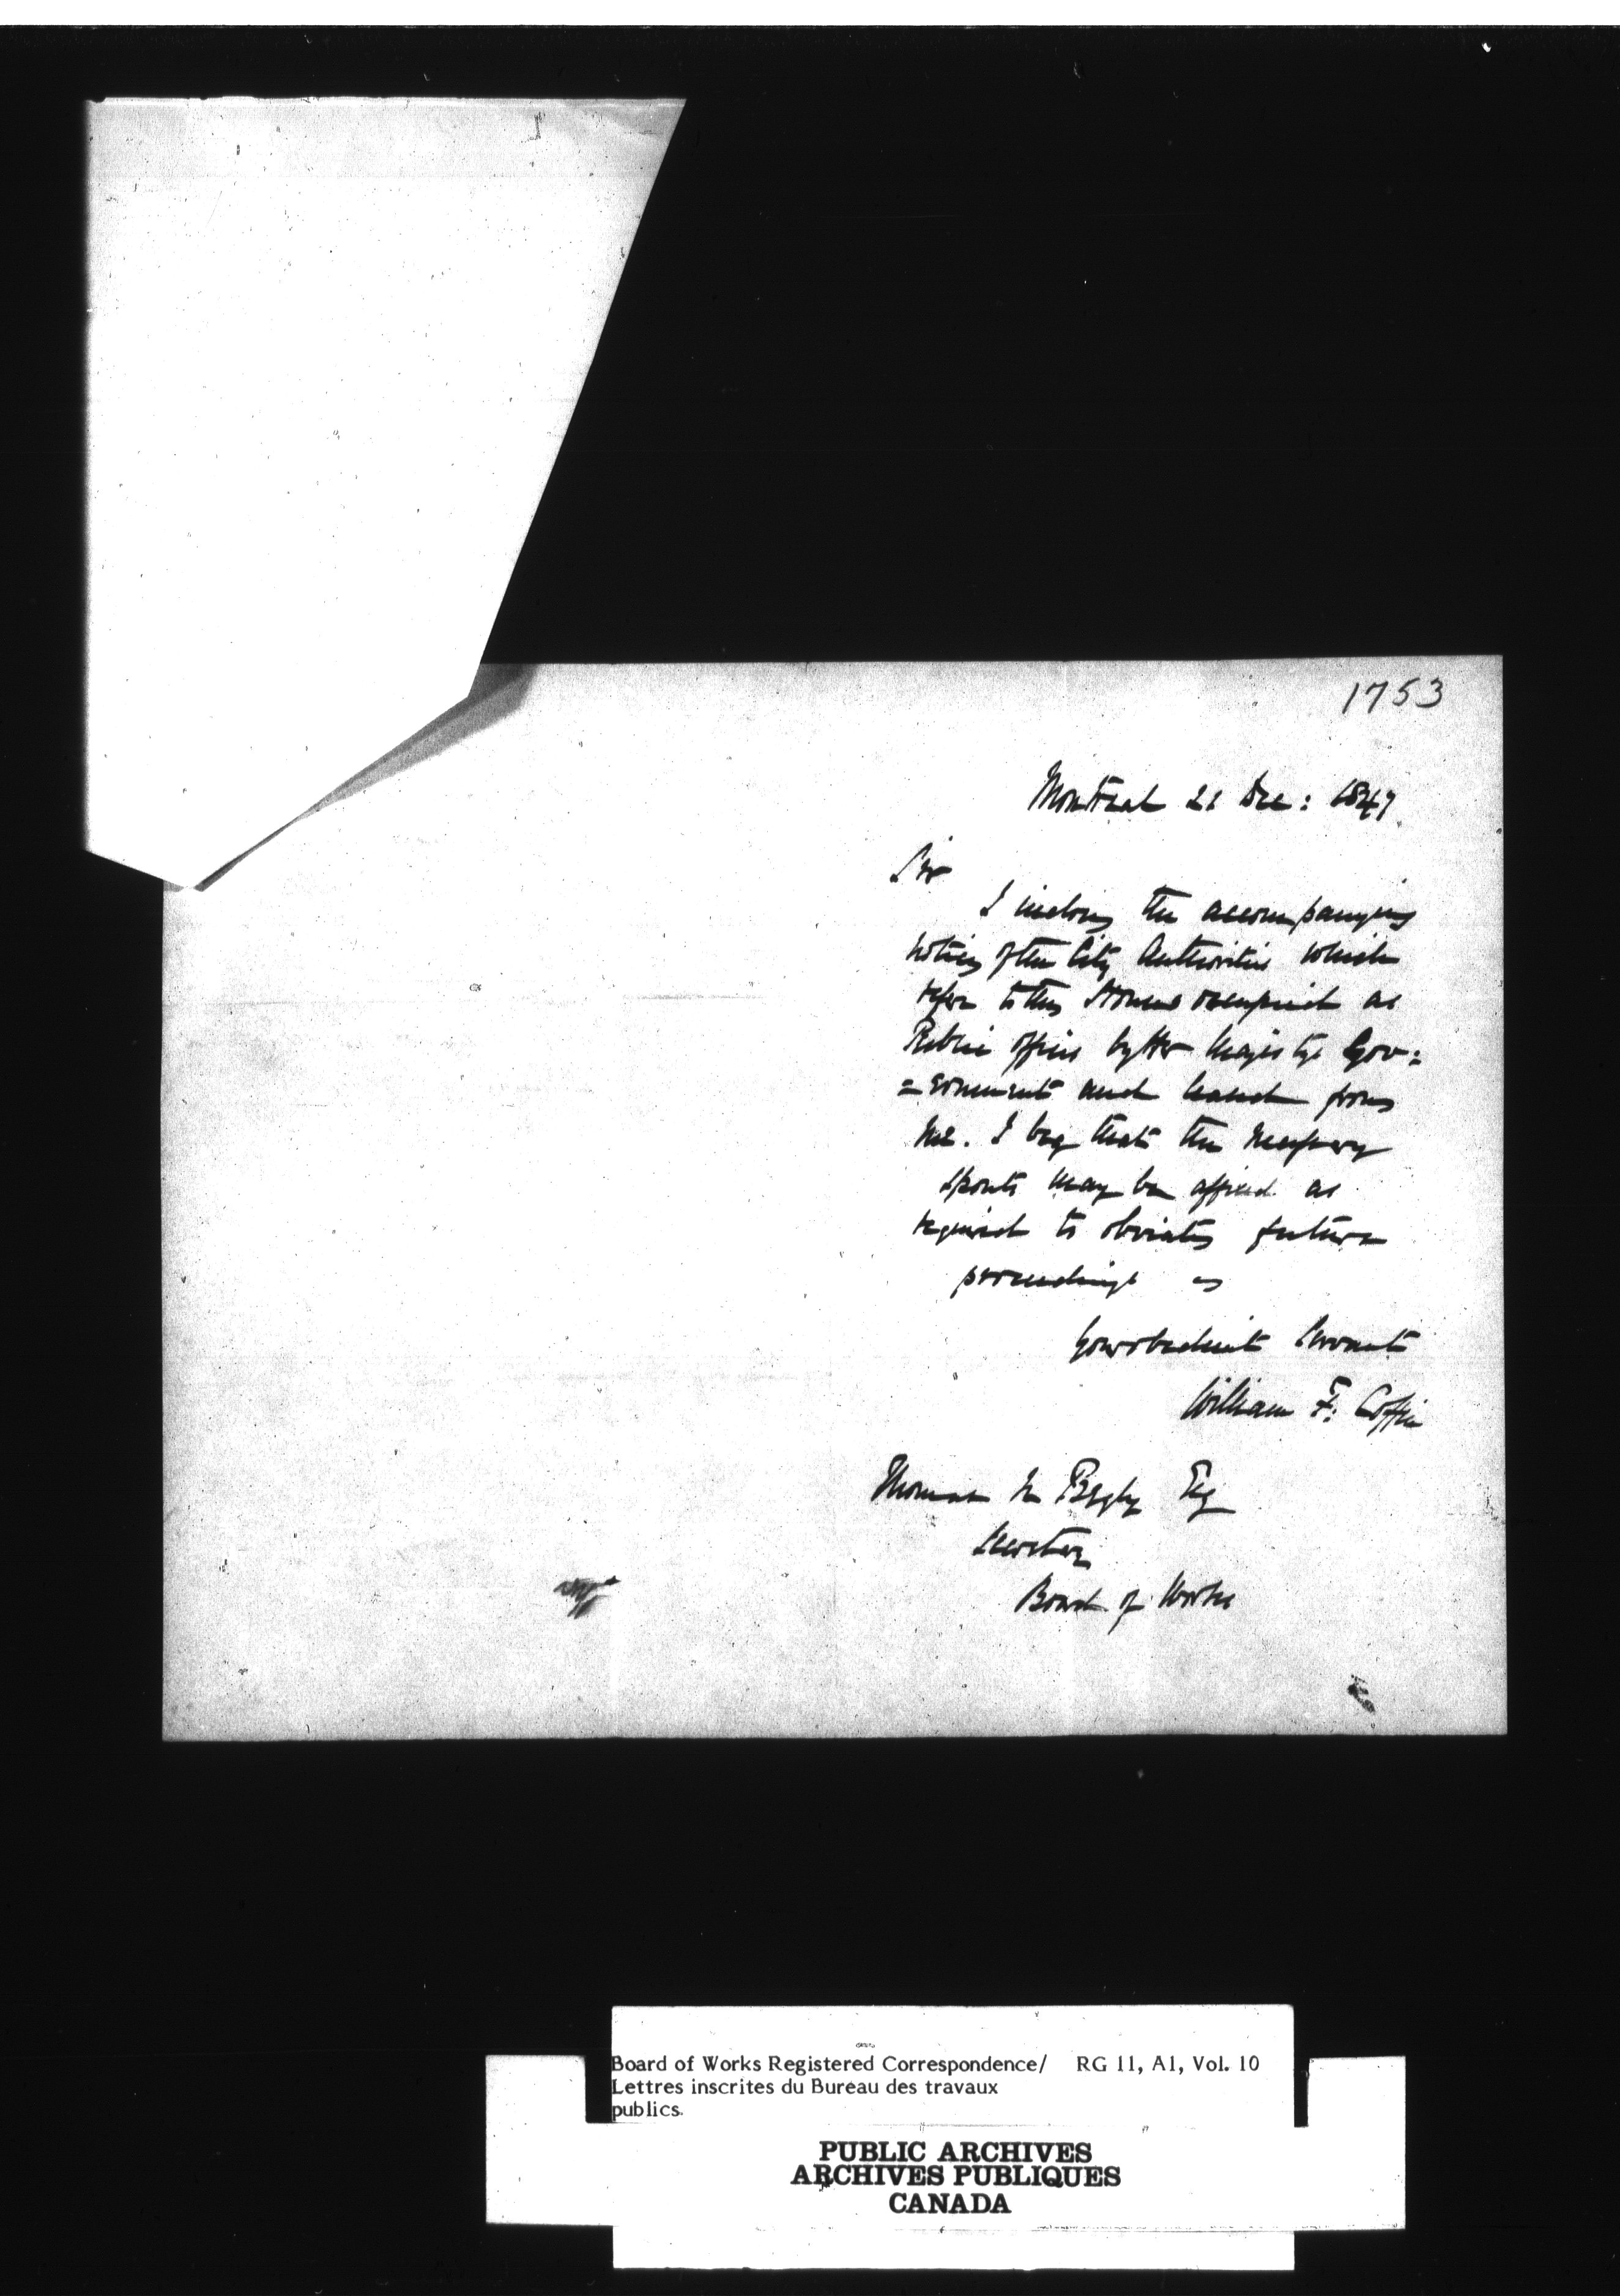 1753
Montreal 21 Dec: 1847
Sir
I inclose the accompanying
notices of the City Authorities which
refer to the Houses occupied as
Public offices by Her Majestys Gov:
=ernment and leased from
me. I beg that the necessary
spouts may be affixed as
required to obviate future
proceedings
Your obedient Servant
William F: Coffin
Thomas A Begly Esq
Secretary
Board of Works
Board of Works Registered Correspondence/ RG 11, A1, Vol. 10
Lettres inscrites du Bureau des travaux
publics.
PUBLIC ARCHIVES
ARCHIVES PUBLIQUES
CANADA